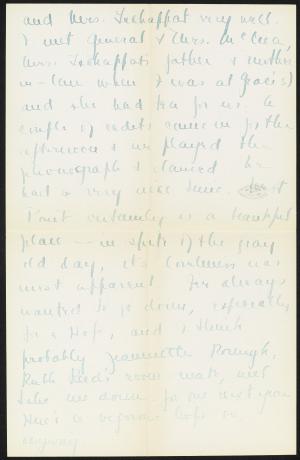 and Mrs. Tschappat very well.
I met General & Mrs. McCrea,
Mrs. Tschappat's father & mother
in-law when I was at Gracie's)
and she had tea for us. A
couple of cadets came in for the
afternoon & we played the
phonograph & danced. We
had a very nice time. West
Point certainly is a beautiful
place — in spite of the gray
old day, its loveliness was
most apparent. I've always
wanted to go down, especially
for a Hop, and I think
probably Jeannette
Ruth room mate, will
take me down for one next year
Here's a vigorous hope on
anyway.